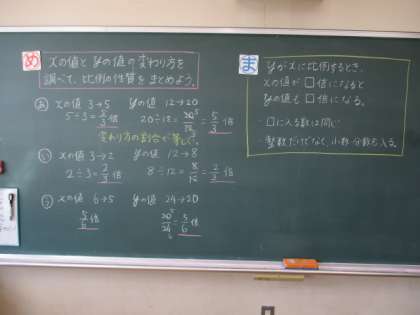 め
xの値とyの値の変わり方を
調べて、比例の性質をまとめよう。
あ xの値 3→5 yの値 12→20
5÷3=5/3倍 20÷12=20/12=5/3倍
変わり方の割合が等しい。
い xの値 3→2 yの値 12→8
2÷3=2/3倍 8÷12=8/12=2/3倍
う xの値 6→5 yの値 24→20
5/6倍 20/24=5/6倍
ま
yがxに比例するとき、
xの値が□倍になると
yの値も□倍になる。
・□に入る数は同じ
・整数だけでなく、小数・分数も入る。